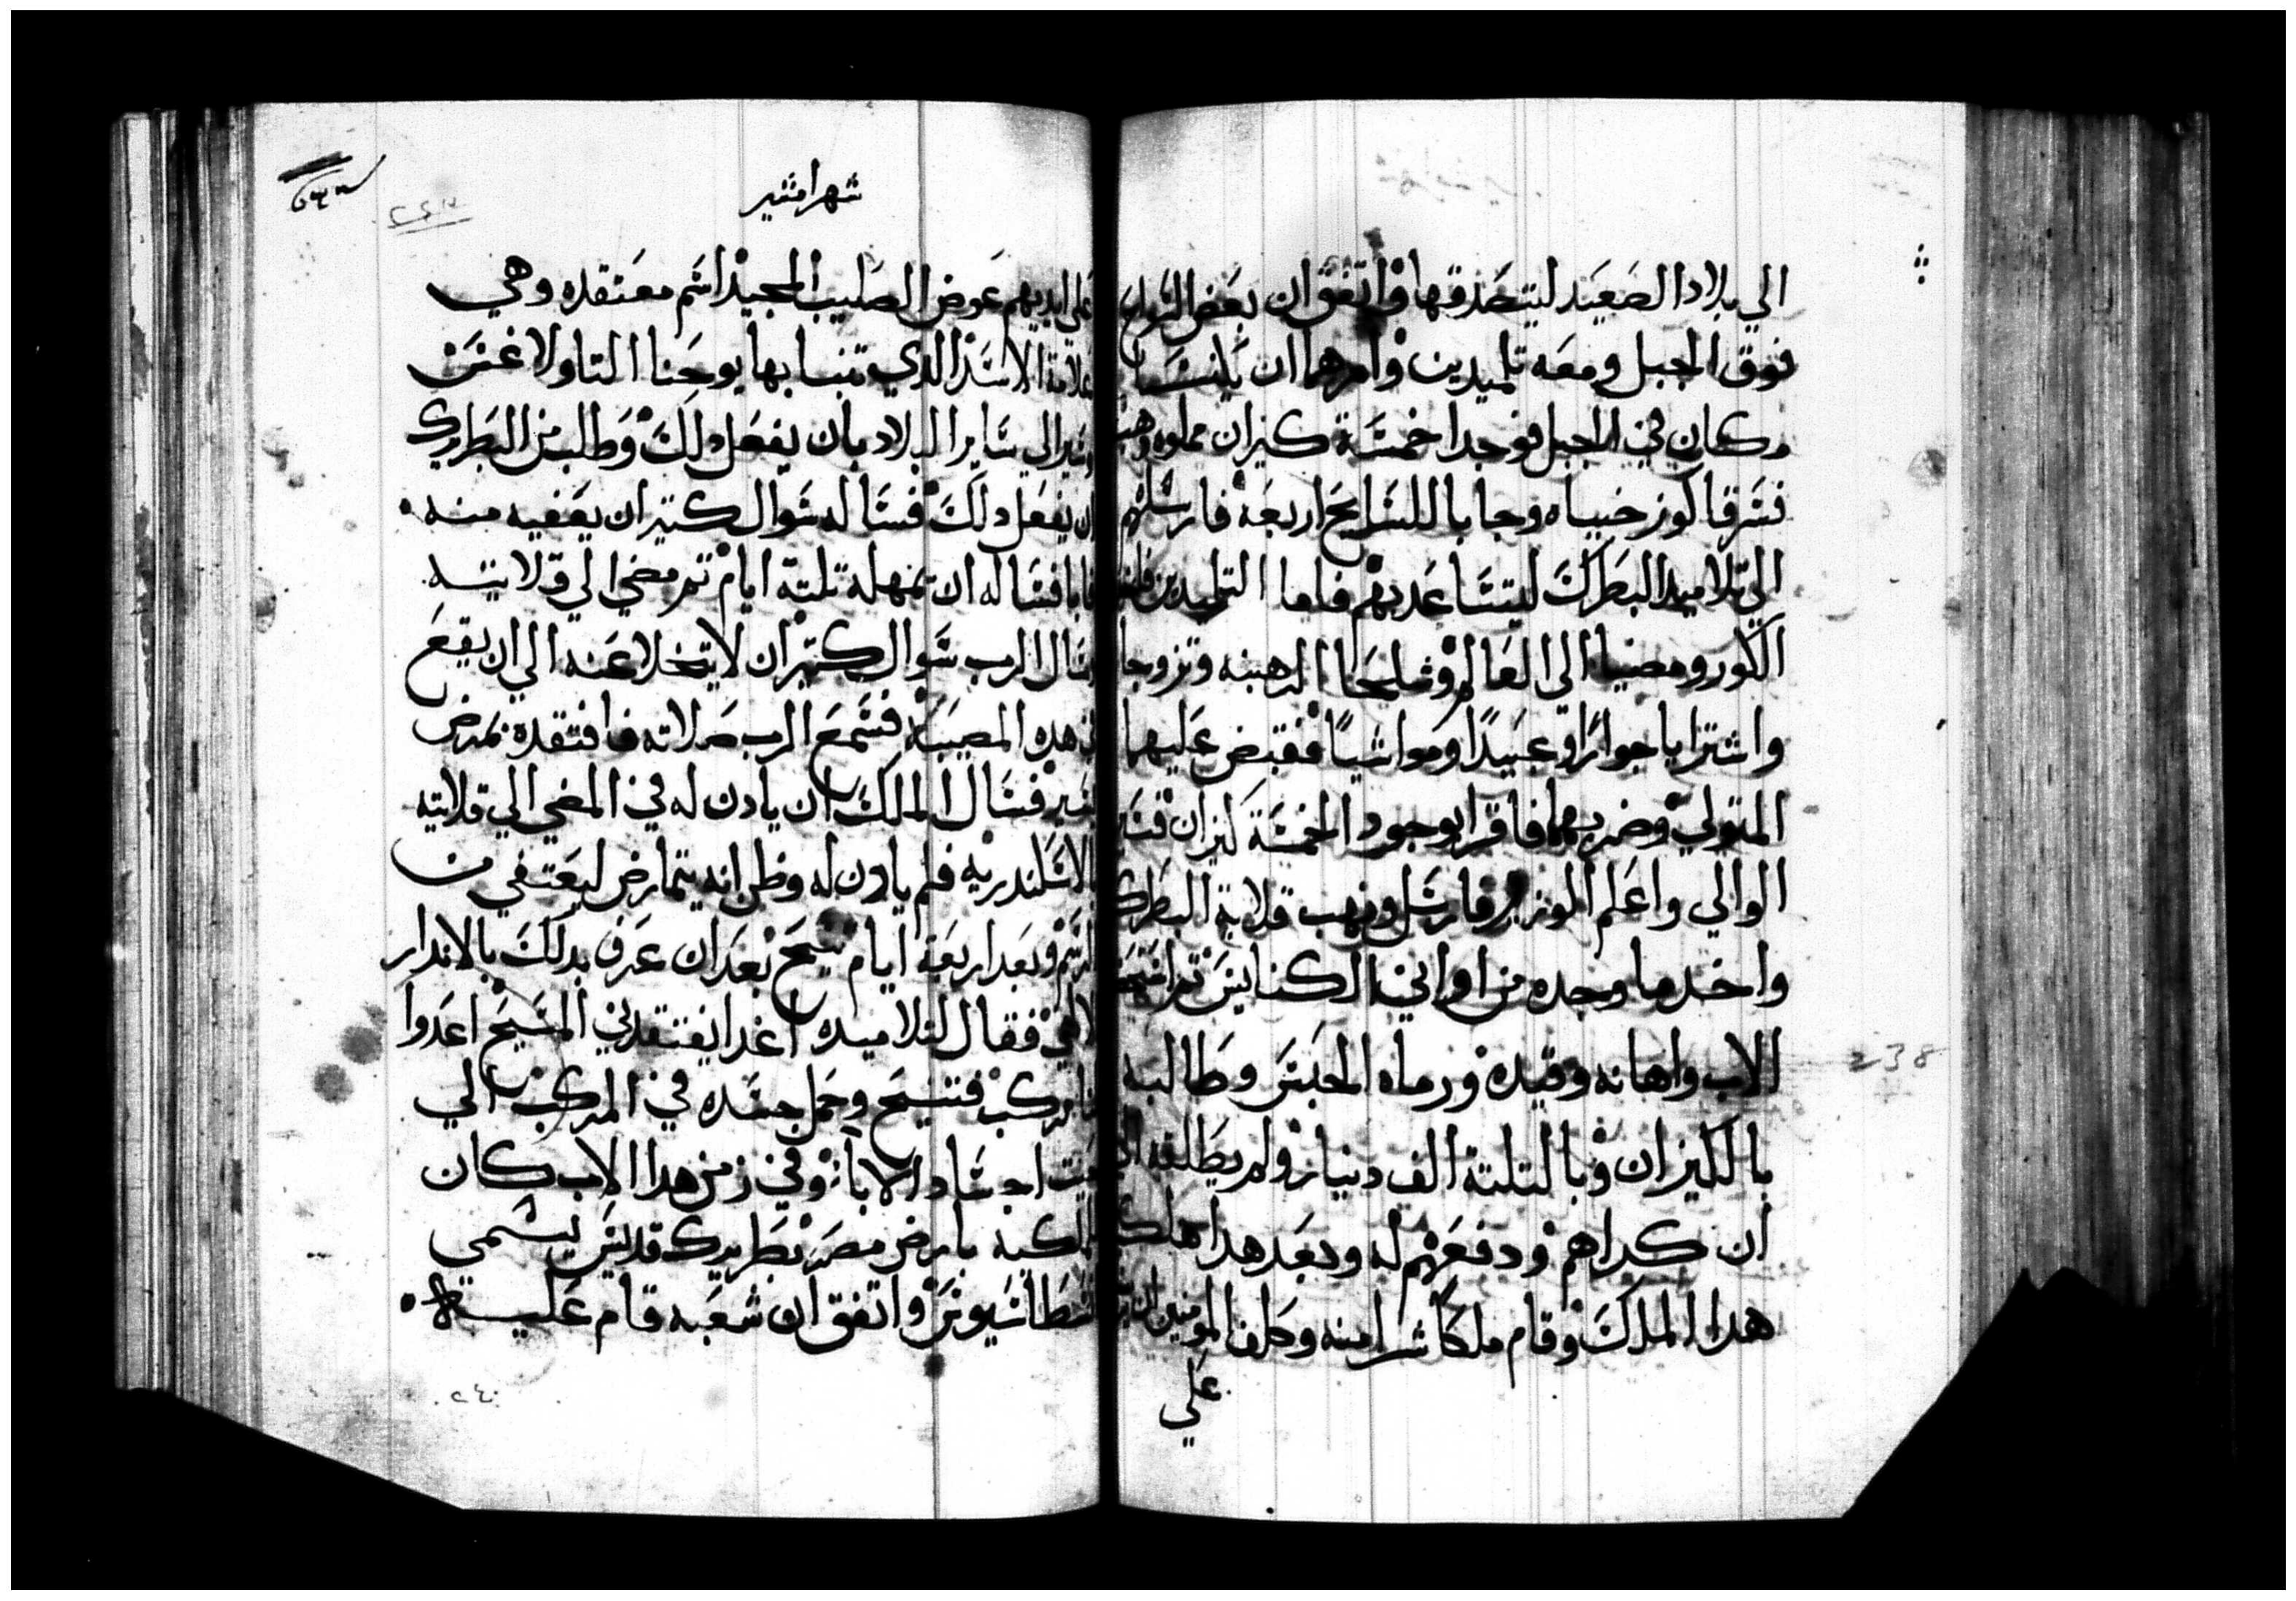 الي بلاد الصعيد ليتصدقها واتفق ان بعض الرهبان
فوق الجبل ومعه تلميدين وامرهما ان يكنسا
مكان في الجبل فوجدا خمسة كيزان مملوه دهب
فسرقا كوز خبياه وجابا للشايخ اربعة فارسلهم
الي تلاميد البطرك ليتساعد بهم فاما التلميدين فاخدا
الكوز ومضيا الي العالم وشلحا الرهبنه وتزوجا
واشترايا جوارًا وعبيدًا ومواشيًا فقبض عليهما
المتولي وضربهما فاقرا بوجود الخمسة كيزان فسير
الوالي واعلم الوزير فارسل ونهب قلاية البطرك
واخد ما وجده من اواني الكنايس تم استحضر
الاب واهانه وقيده ورماه الحبس وطالبه
بالكيزان وبالتلتة الف دنيار ولم يطلقه الي
ان كراهم ودفعهم له وبعد هدا هلك
هدا الملك وقام ملكا شرا منه وكلف المومنين ان
علي
شهر امشير
٢٤٣
علي ايديهم عوض الصليب المجيد اسم معتقده وهي
علامة الاسد الدي تنبا بها يوحنا التاولاغس
وسير الي ساير البلاد بان يفعل دلك وطلب من البطريرك
ان يفعل دلك فساله سوال كتير ان يعفيه منه
فابا فساله ان يمهله تلتة ايام تم مضي الي قلايته
وسال الرب سوال كتير ان لا يتخلا عنه الي ان يقع
في هده المصيبة فسمع الرب صلاته فافتقده بمرض
يسير فسال الملك ان يادن له في المضي الي قلايته
بالاسكندريه فلم يادن له وظن انه يتمارض ليعتفي من
الرسم وبعد اربعة ايام تنيح بعد ان عرف بدلك بالاندار
الالهي فقال لتلاميده اغدا يفتقدني المسيح اعدوا
لنا مركب فتنيح وحمل جسده في المركب الي
حيت اجساد الابا وفي زمن هدا الاب كان
للملكية بارض مصر بطريرك قديس يسمي
قسطاسيوس واتفق ان شعبه قام عليه
٢٤٠
238